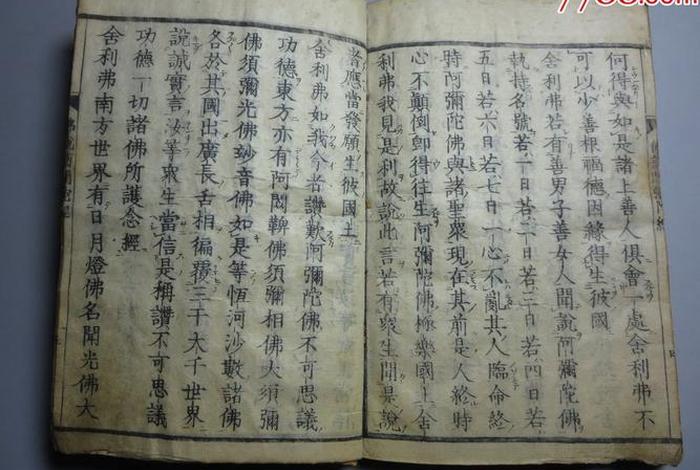 何得與如是諸上善人俱會一處舍利弗不
可以少善根福德因緣得生彼國
舍利弗若有善男子善女人聞說阿彌陀佛
執持名號若一日若二日若三日若四日若
五日若六日若七日一心不亂其人臨命終
時阿彌陀佛與諸聖衆現在其前是人終時
心不顛倒卽得往生阿彌陀佛極樂國土舍
利弗我見是利故說此言若有衆生聞是說
者應當發願生彼國土
舍利弗如我今者讚歎阿彌陀佛不可思議
功德東方亦有阿閦鞞佛須彌相佛大須彌
佛須彌光佛妙音佛如是等恒河沙數諸佛
各於其國出廣長舌相徧覆三千大千世界
說誠實言汝等衆生當信是稱讚不可思議
功德一切諸佛所護念經
舍利弗南方世界有日月燈佛名聞光佛大